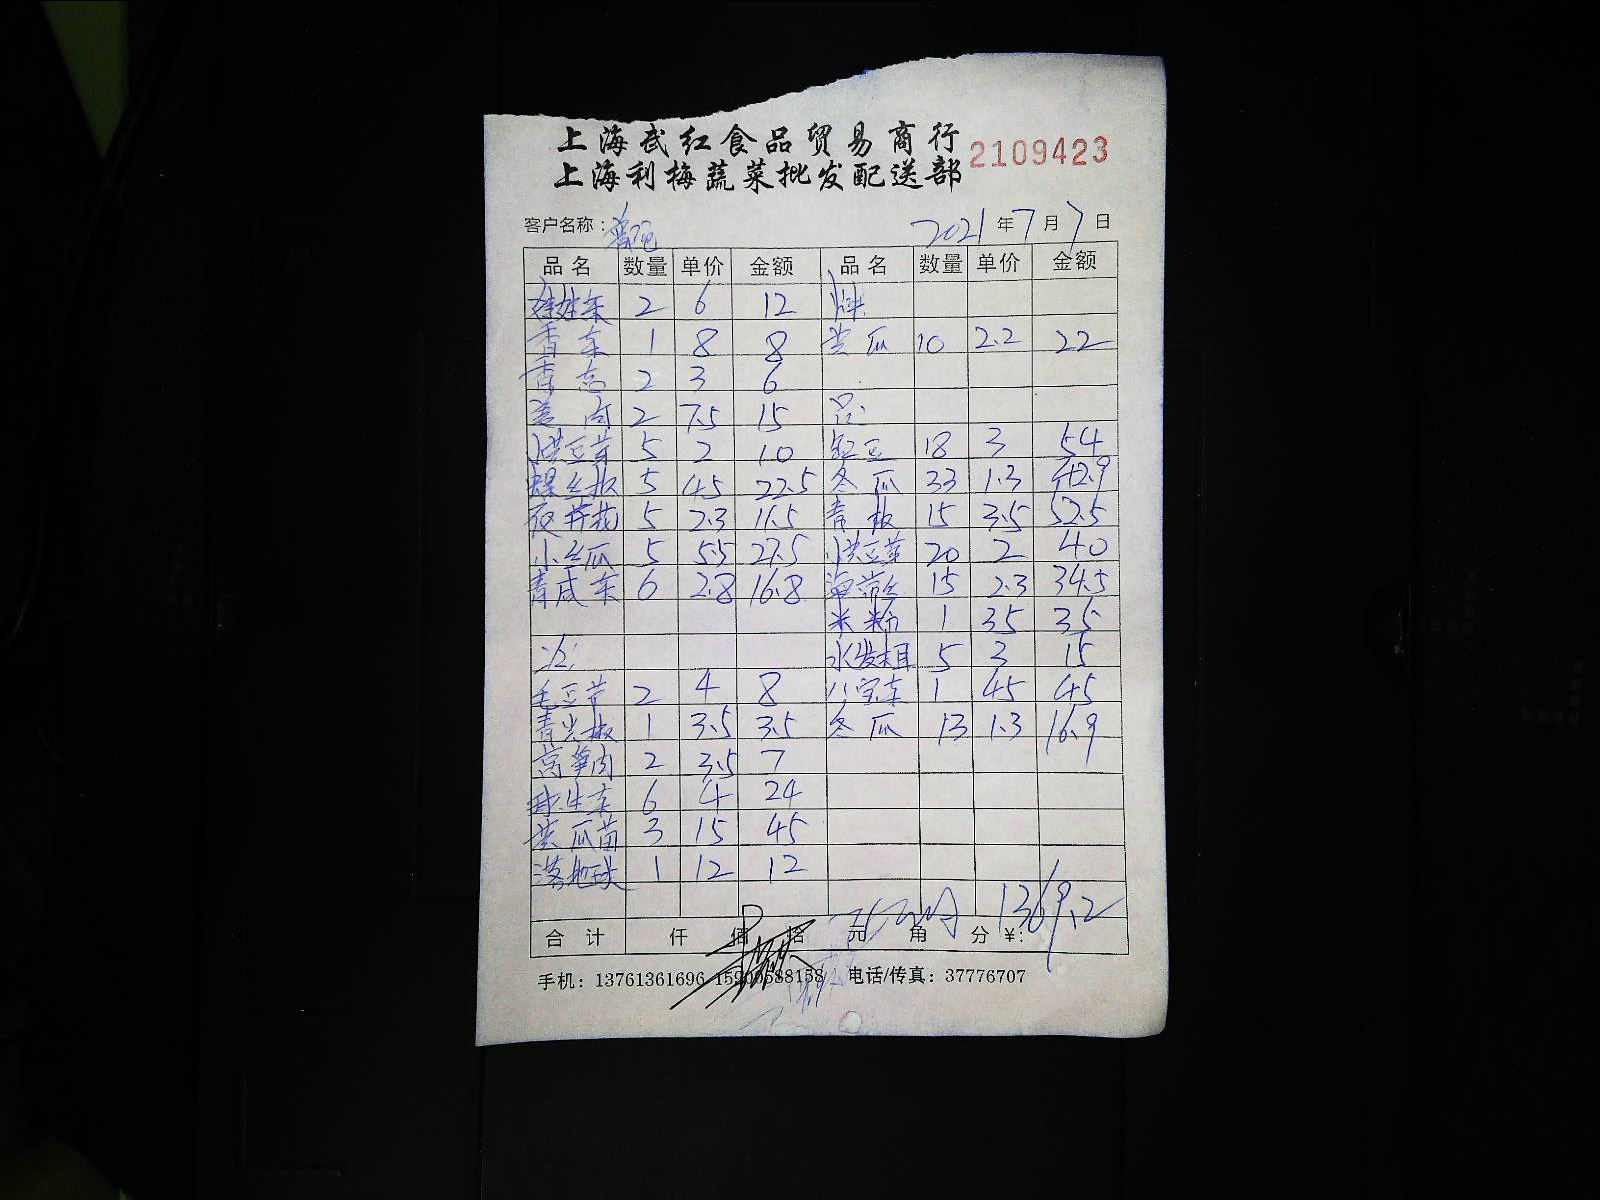 上海武红食品贸易商行
2109423
上海利梅蔬菜批发配送部
客户名称： 2021年7月7日
品名 数量 单价 金额 品名 数量 单价 金额
娃娃菜 2 6 12
香菜 1 8 8 黄瓜 10 2.2 22
2 3 6
姜肉 2 7.5 15
黄豆芽 5 2 10 豇豆 18 3 54
螺丝椒 5 4.5 22.5 冬瓜 33 1.3 42.9
夜开花 5 2.3 11.5 青椒 15 3.5 52.5
小丝瓜 5 5.5 27.5 黄豆芽 20 2 40
青咸菜 6 2.8 16.8 海带丝 15 2.3 34.5
米粉 1 35 35
水发木耳 5 3 15
毛豆节 2 4 8 八宝菜 1 45 45
青尖椒 1 3.5 3.5 冬瓜 13 1.3 16.9
莴笋肉 2 3.5 7
球生菜 6 4 24
黄瓜苗 3 15 45
1 12 12
1369.2
合计 仟 佰 拾 元 角 分 ¥:
手机：13761361696 15900588158 电话/传真：37776707